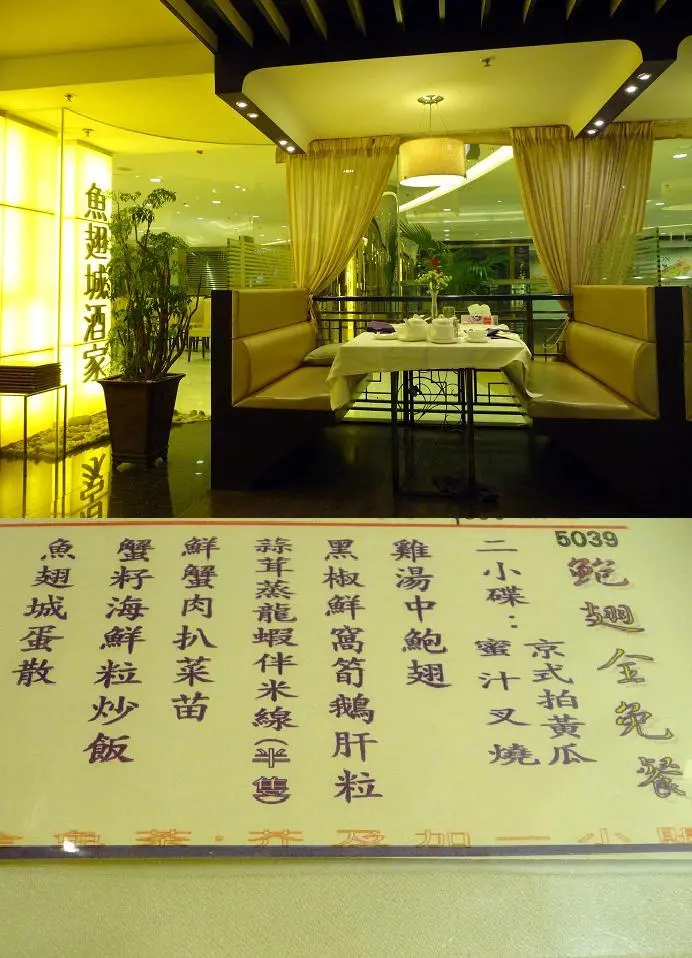 魚翅城酒家
5039
鮑翅全免餐
二小碟：京式拍黃瓜
蜜汁叉燒
雞湯中鮑翅
黑椒鮮窩筍鵝肝粒
蒜茸蒸龍蝦伴米線(平雙)
鮮蟹肉扒菜苗
蟹籽海鮮粒炒飯
魚翅城蛋散